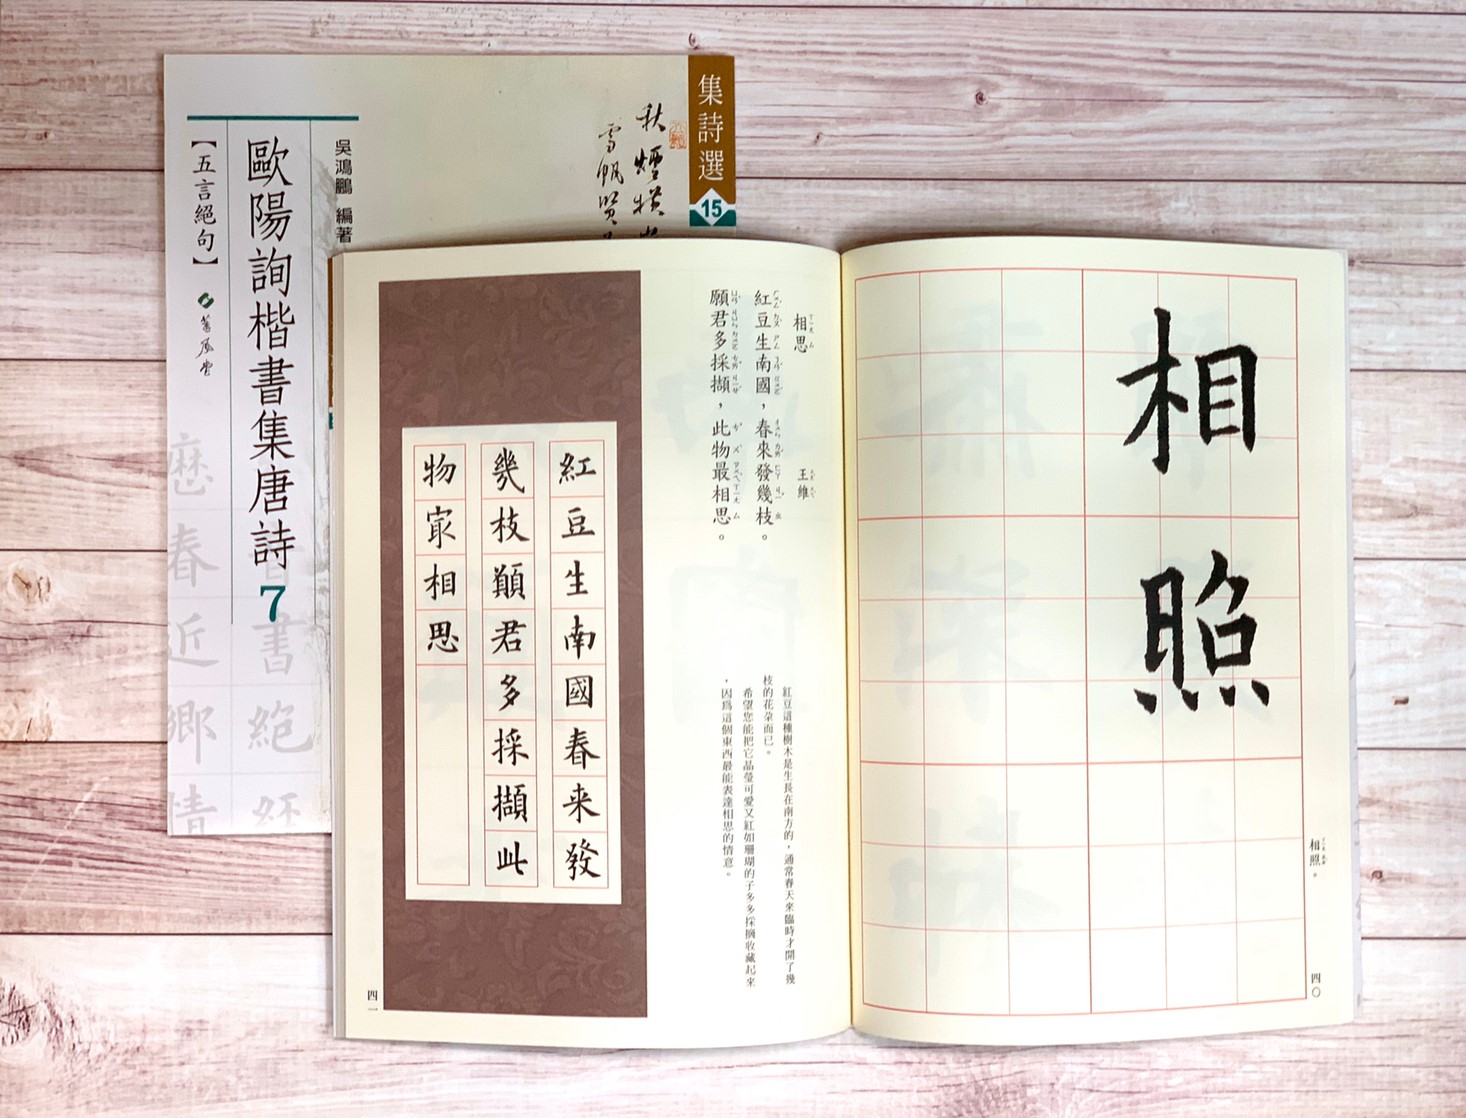 集詩選
15
吳鴻鵬 編著
歐陽詢楷書集唐詩7
【五言絕句】
蕙風堂
春近鄉情
書絕
相照
相照。
四〇
相思 王維
紅豆生南國，春來發幾枝。
願君多採擷，此物最相思。
紅豆這種樹木是生長在南方的，通常春天來臨時才開了幾
枝的花朵而已。
希望您能把它晶瑩可愛又紅如珊瑚的子多多採摘收藏起來
，因爲這個東西最能表達相思的情意。
紅豆生南國春来發
幾枝願君多採擷此
物㝡相思
四一